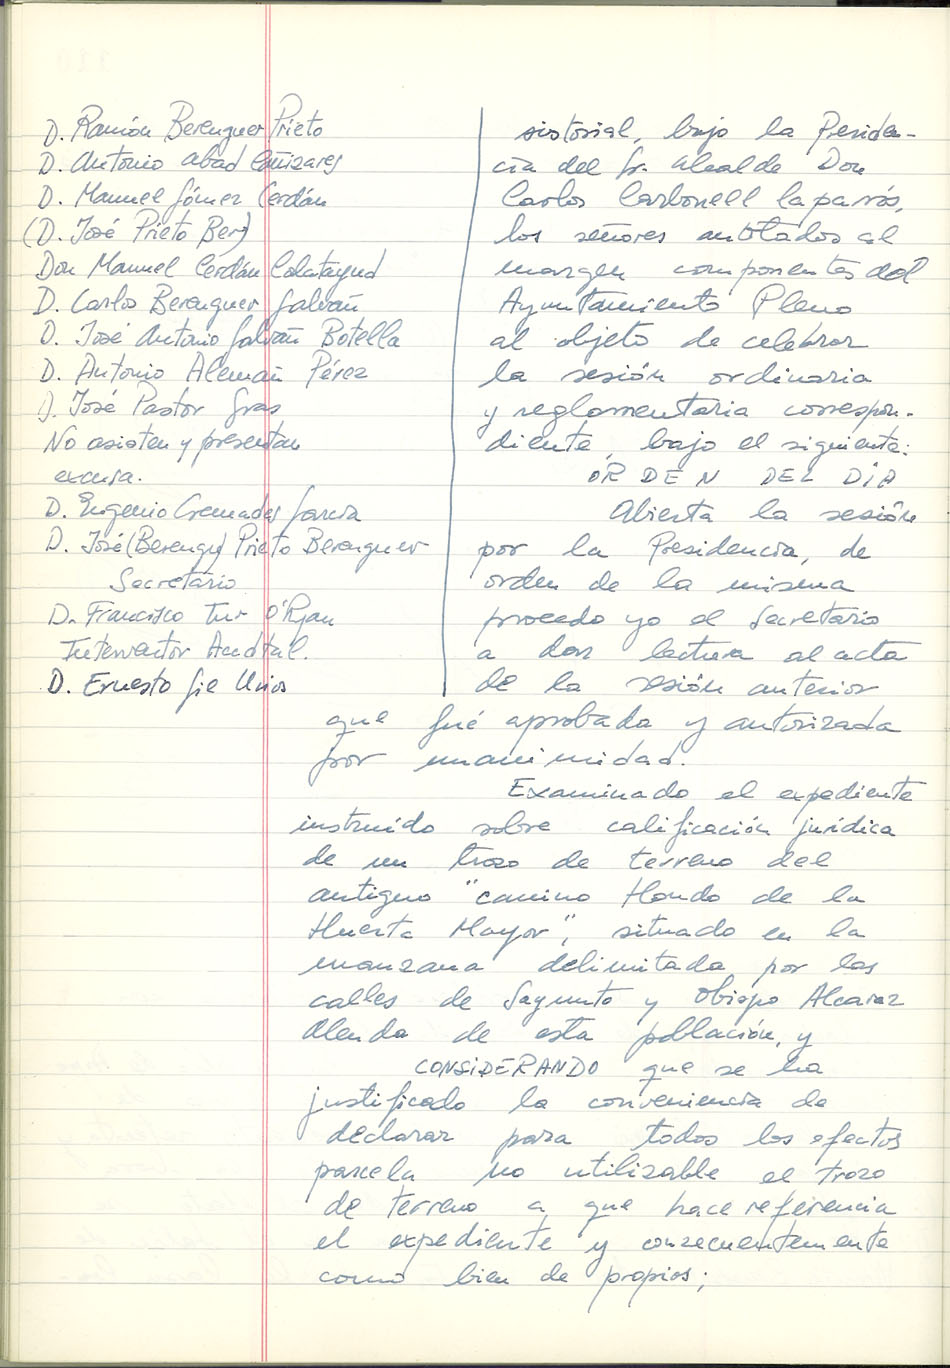 D. Ramón Berenguer Prieto
D. Antonio Abad Cañizares
D. Manuel Gómez Cerdán
(D. José Prieto Ber)
Don Manuel Cerdán Calatayud
D. Carlos Berenguer Galvañ
D. José Antonio Galvañ Botella
D. Antonio Alemañ Pérez
D. José Pastor Gras
No asisten y presentan
excusa.
D. Eugenio Cremades García
D. José (Berengu) Prieto Berenguer
Secretario
D. Francisco Tur O'Ryan
Interventor Acctal.
D. Ernesto Gil
sistorial, bajo la Presiden-
cia del Sr. Alcalde Don
Carlos Carbonell Laparró,
los señores anotados al
margen componentes del
Ayuntamiento Pleno
al objeto de celebrar
la sesión ordinaria
y reglamentaria correspon-
diente, bajo el siguiente:
ORDEN DEL DÍA
Abierta la sesión
por la Presidencia, de
orden de la misma
procedo yo el Secretario
a dar lectura al acta
de la sesión anterior
que fué aprobada y autorizada
por unanimidad.
Examinado el expediente
instruido sobre calificación jurídica
de un trozo de terreno del
antiguo "camino Hondo de la
Huerta Mayor", situado en la
manzana delimitada por las
calles de Sagunto y Obispo Alcaraz
Alenda de esta población, y
CONSIDERANDO que se ha
justificado la conveniencia de
declarar para todos los efectos
parcela no utilizable el trozo
de terreno a que hace referencia
el expediente y consecuentemente
como bien de propios;